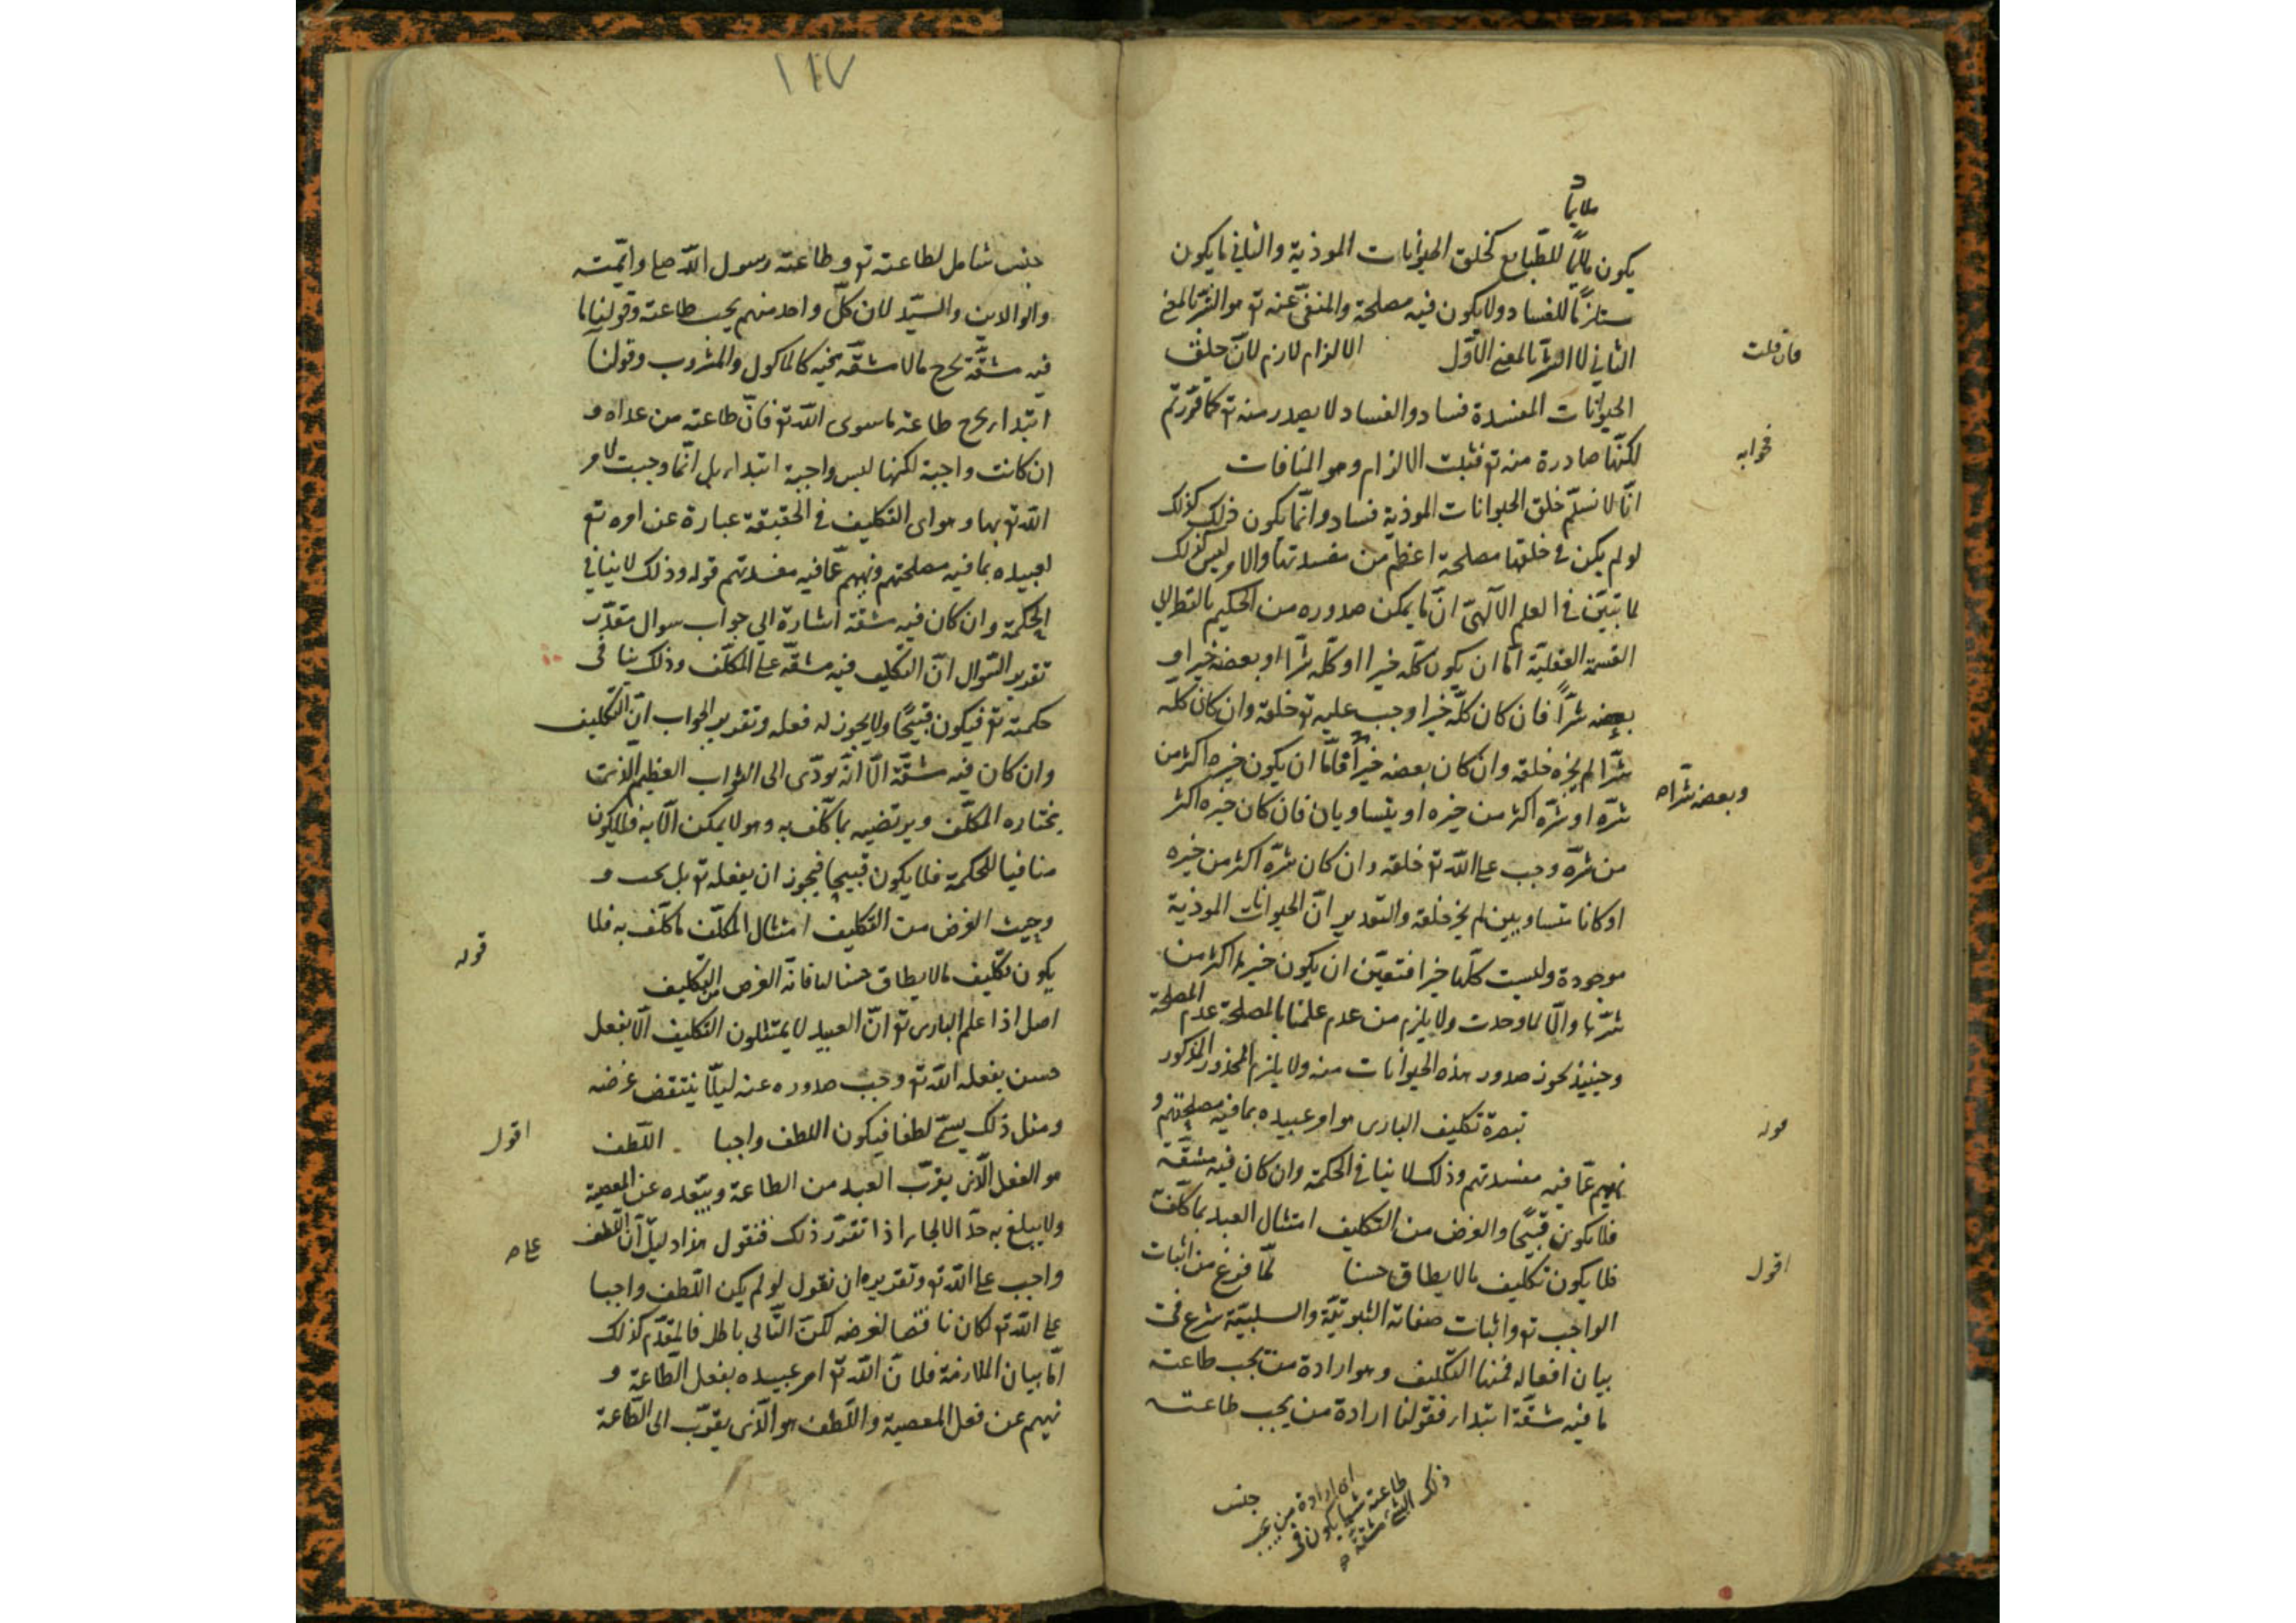 ملايما
يكون ملايما للطبايع كخلق الحيوانات الموذية والثاني ما يكون
مستلزما للفساد ولا يكون فيه مصلحة والمنفي عنه تع هو الشر بالمعنى
فان قلت
الثاني لا الشر بالمعنى الاول الالزام لازم لان خلق
الحيوانات المفسدة فساد والفساد لا يصدر منه تع كما قررتم
فجوابه
لكنها صادرة منه تع فثبت الالزام وهو المنافات
انا لا نسلم خلق الحيوانات الموذية فساد وانما يكون كذلك
لو لم يكن في خلقها مصلحة اعظم من مفسدتها والامر ليس كذلك
لما تبين في العلم الالهي ان ما يمكن صدوره من الحكيم بالنظر الى
القسمة العقلية اما ان يكون كله خيرا او كله شرا او بعضه خيرا و
بعضه شرا فان كان كله خيرا وجب عليه تع خلقه وان كان كله
شرا لم يجزه خلقه وان كان بعضه خيرا فاما ان يكون خيره اكثر من
وبعضه شرا ه
شره او شره اكثر من خيره او يتساويان فان كان خيره اكثر
من شره وجب على الله تع خلقه وان كان شره اكثر من خيره
او كانا متساويين لم يجز خلقه والتقدير ان الحيوانات الموذية
موجودة وليست كلها خيرا فتعين ان يكون خيرها اكثر من
شرها والا لما وجدت ولا يلزم من عدم علمنا بالمصلحة عدم المصلحة
وحينئذ يجوز صدور هذه الحيوانات منه ولا يلزم المحذور المذكور
قوله
تبصرة تكليف البارى هو امر عبيده بما فيه مصلحتهم و
نهيهم عما فيه مفسدتهم وذلك لا ينافي الحكمة وان كان فيه مشقة
فلا يكون قبيحا والغرض من التكليف امتثال العبد بما كلف
اقول
فلا يكون تكليف مالا يطاق حسنا لما فرغ من اثبات
الواجب تع واثبات صفاته الثبوتية والسلبية شرع في
بيان افعاله فمنها التكليف وهو ارادة من يجب طاعته
ما فيه مشقة ابتداء فقولنا ارادة من يجب طاعته
جنس
اى ارادة من يجب
طاعته شيئا يكون في
ذلك الشئ مشقة ه
١١٧
جنس شامل لطاعته تع وطاعة رسول الله صلع وائمته
والوالدين والسيد لان كل واحد منهم يجب طاعته وقولنا ما
فيه مشقة يخرج مالا مشقة فيه كالماكول والمشروب وقولنا
ابتداء يخرج طاعة ما سوى الله تع فان طاعة من عداه و
ان كانت واجبة لكنها ليس واجبة ابتداء بل انما وجبت لامر
الله تع بها وهو اى التكليف في الحقيقة عبارة عن امره تع
لعبيده بما فيه مصلحتهم ونهيهم عما فيه مفسدتهم قوله وذلك لا ينافي
الحكمة وان كان فيه مشقة اشارة الي جواب سوال مقدر
تقدير السوال ان التكليف فيه مشقة على المكلف وذلك ينافى
حكمته تع فيكون قبيحا ولا يجوز له فعله وتقدير الجواب ان التكليف
وان كان فيه مشقة الا انه يودى الى الثواب العظيم الذي
يختاره المكلف ويرتضيه بما كلف به وهو لا يمكن الا به فلا يكون
منافيا للحكمة فلا يكون قبيحا فيجوز ان يفعله تع بل يجب و
وحيث الغرض من التكليف امتثال المكلف ما كلف به فلا
قوله
يكون تكليف مالا يطاق حسنا لمنافاته الغرض من التكليف
اصل اذا علم البارى تع ان العبيد لا يمتثلون التكليف الا بفعل
حسن يفعله الله تع وجب صدوره عنه ليلا ينتقض غرضه
اقول
ومثل ذلك يسمى لطفا فيكون اللطف واجبا اللطف
هو الفعل الذى يقرب العبد من الطاعة ويبعده عن المعصية
ولا يبلغ به حد الالجاء اذا تقرر ذلك فنقول هذا دليل ان اللطف
على ه
واجب على الله تع وتقديره ان نقول لو لم يكن اللطف واجبا
على الله تع لكان ناقضا لغرضه لكن التالى باطل فالمقدم كذلك
اما بيان الملازمة فلان الله تع امر عبيده بفعل الطاعة و
نهيهم عن فعل المعصية واللطف هو الذى يقرب الى الطاعة